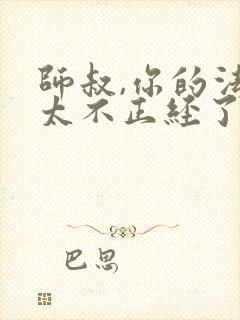 师叔,你的法
太不正经了
巴思